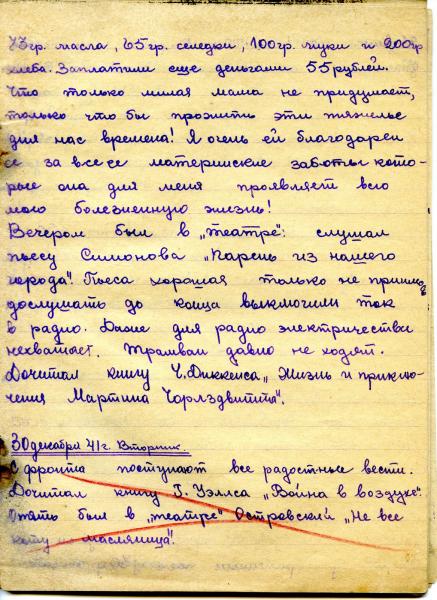 73гр. масла, 65гр. селедки, 100гр. муки и 200гр
хлеба. Заплатили еще деньгами 55рублей.
Что только милая мама не придумает,
только что бы прожить эти тяжелые
для нас времена! Я очень ей благодарен
ее за все ее материнские заботы кото-
рые она для меня проявляет всю
мою болезненную жизнь!
Вечером был в „театре“: слушал
пьесу Симонова „Парень из нашего
города“. Пьеса хорошая только не пришлось
дослушать до конца выключили ток
в радио. Даже для радио электричества
нехватает. Трамваи давно не ходят.
Дочитал книгу Ч. Диккенса „Жизнь и приклю-
чения Мартина Чорлздвитта“.
30 декабря 41г. Вторник.
С фронта поступают все радостные вести.
Дочитал книгу Г. Уэллса „Война в воздухе“.
Опять был в „театре“ Островский „Не все
коту масляница“.